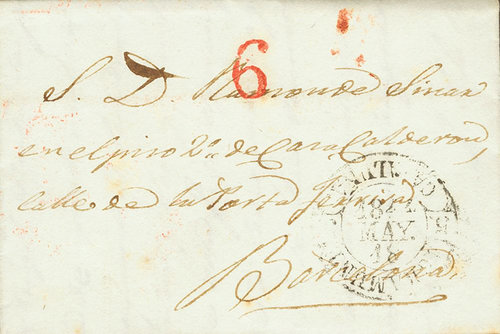 6
S. D. Ramon de Sinan
en el piso 2º de Casa Calderon,
calle de la Porta Ferrisa
Barcelona.
1842
MAY.
18